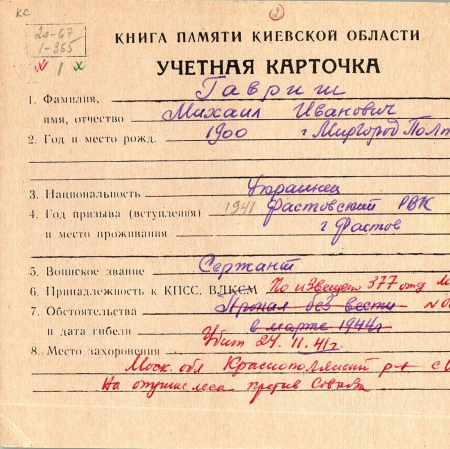 КС
2
20-67
1-365
1
КНИГА ПАМЯТИ КИЕВСКОЙ ОБЛАСТИ
УЧЕТНАЯ КАРТОЧКА
1. Фамилия, Гавриш
имя, отчество Михаил Иванович
2. Год и место рожд. 1900 г Миргород Полт
3. Национальность Украинец
4. Год призыва (вступления) 1941 Фастовский РВК
и место проживания г Фастов
5. Воинское звание Сержант
6. Принадлежность к КПСС, ВЛКСМ По извещен 377 отд
7. Обстоятельства Пропал без вести
и дата гибели в марте 1944г
Убит 24. 11. 41г.
8. Место захоронения
Моск. обл Краснополянский р-н с
На опушке леса против